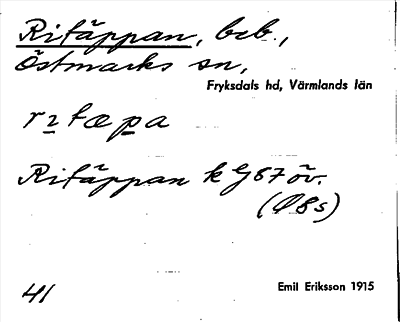 Ritäppan, beb.,
Östmarks sn,
Fryksdals hd, Värmlands län
Ritäppan k
(Ö 8s)
41
Emil Eriksson 1915